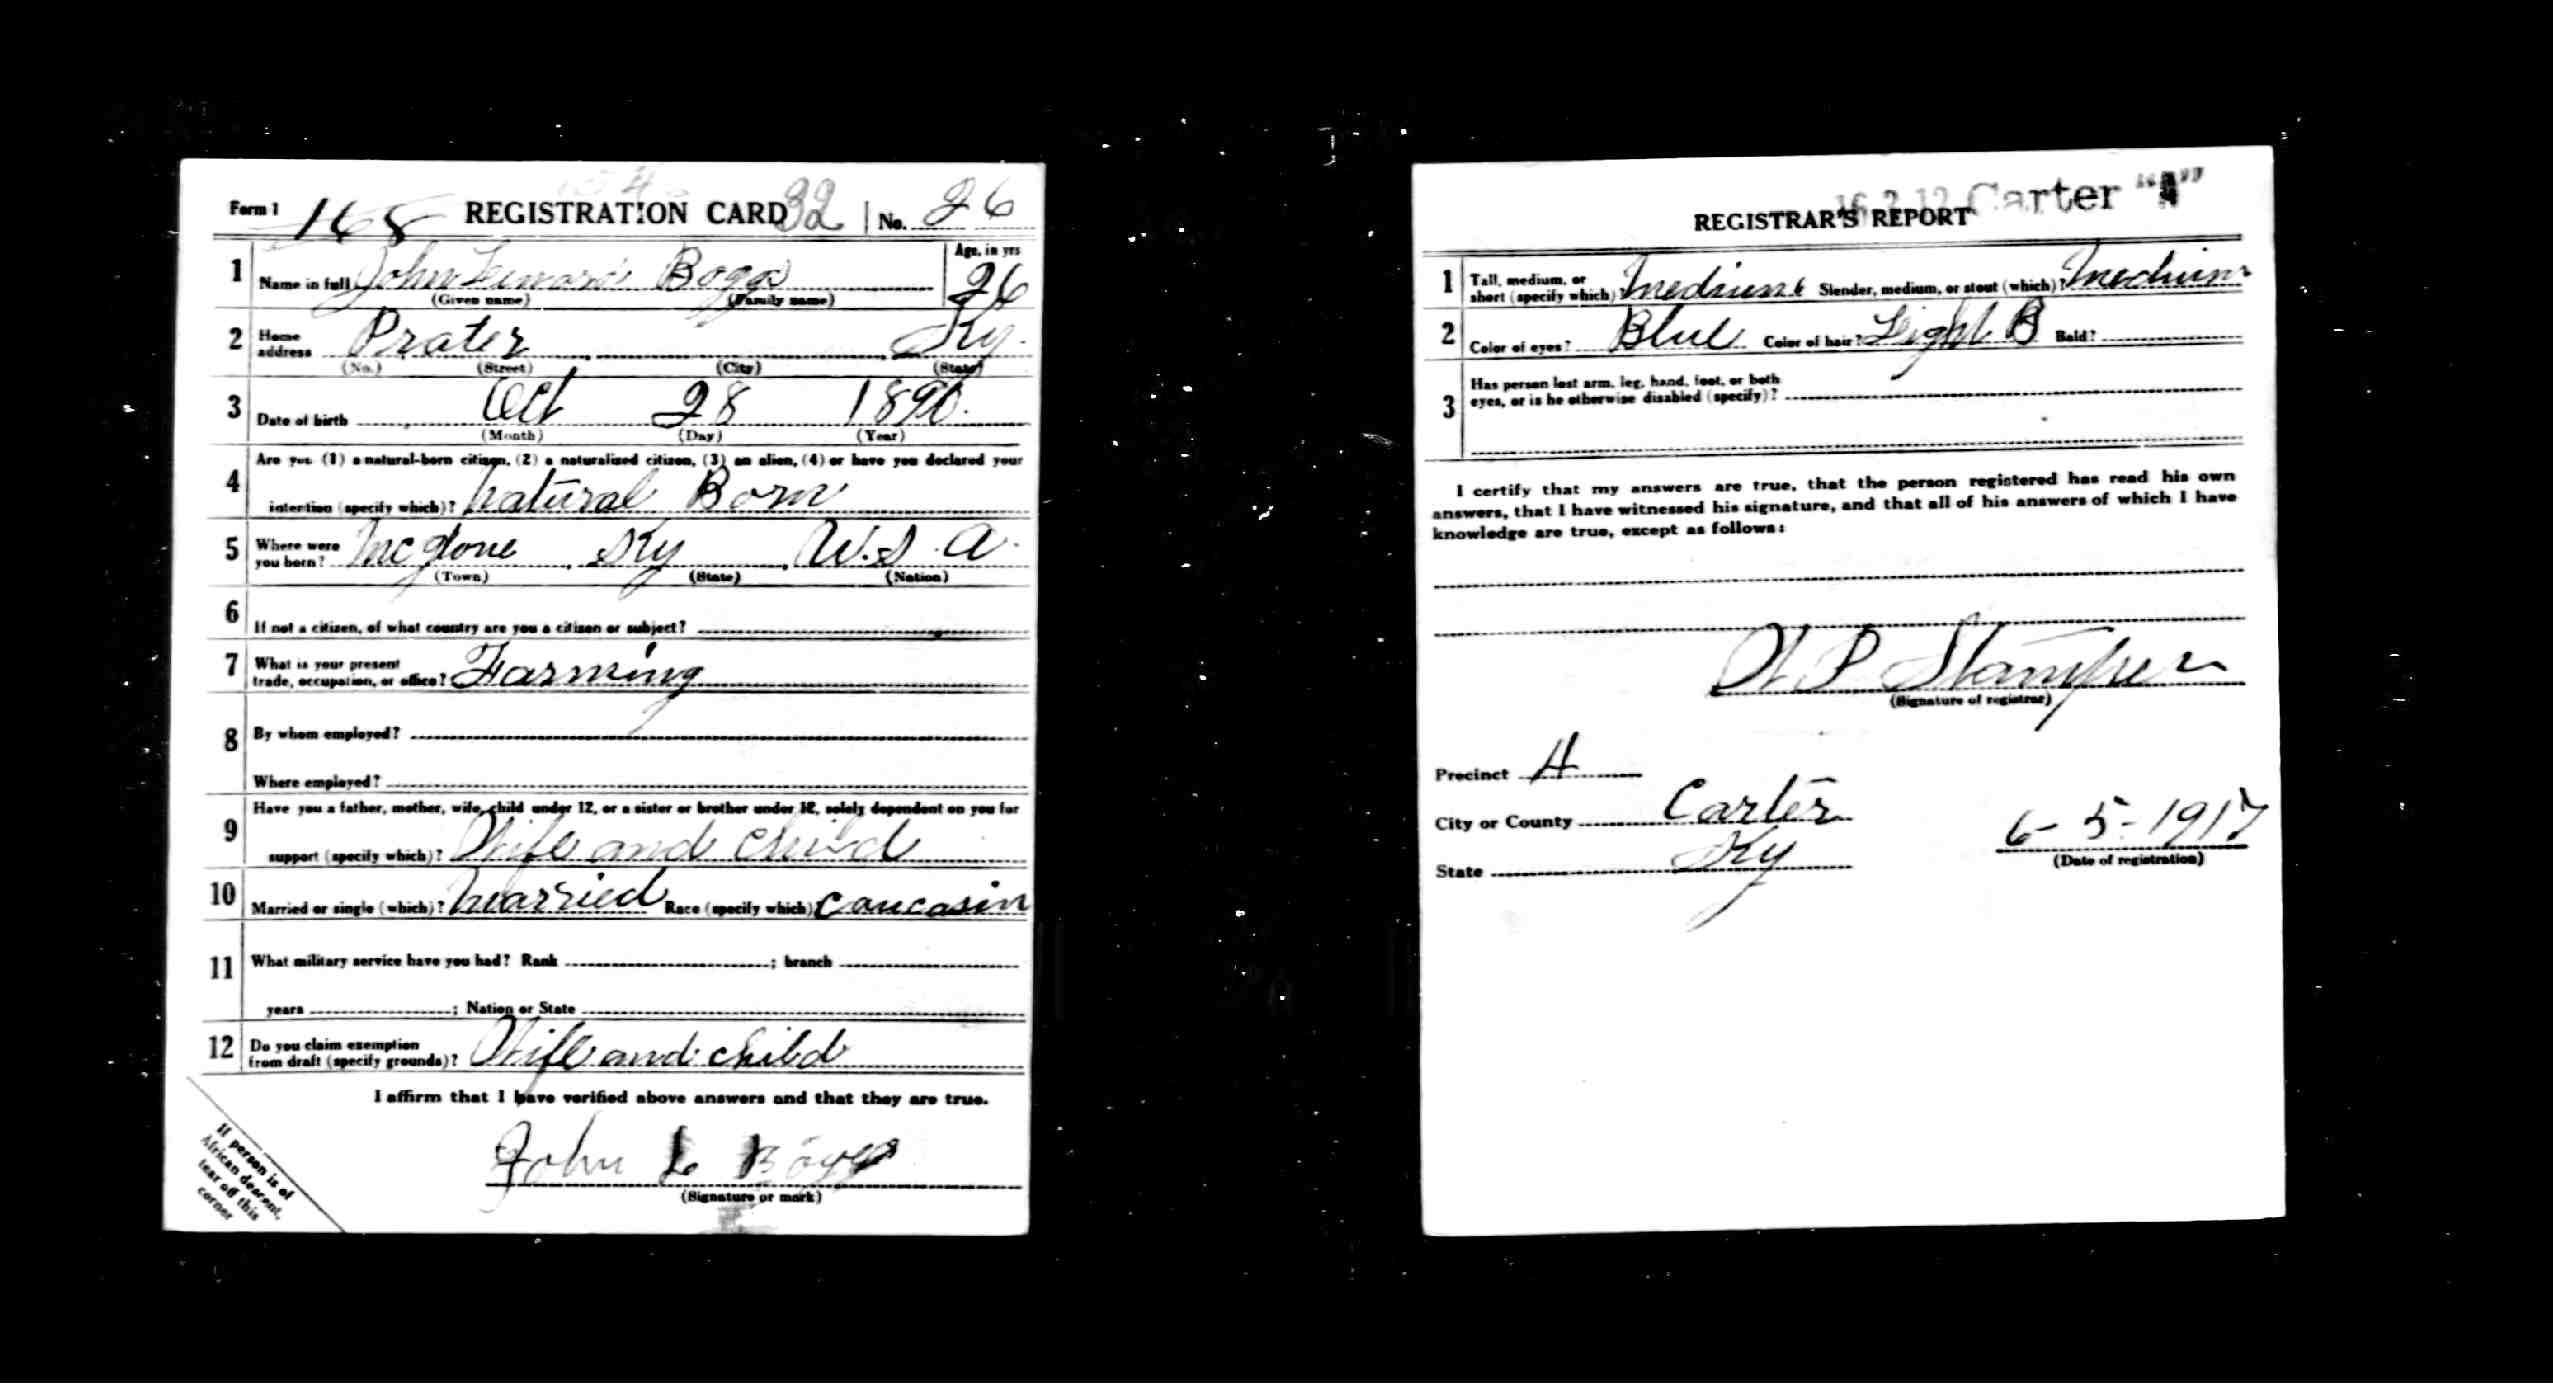 Form 1 168 REGISTRATION CARD 32 No. 26
1 Name in full John Boggs Age, in yrs 26
(Given name) (Family name)
2 Home address Prater Ky.
(No.) (Street) (City) (State)
3 Date of birth Oct 28 1890.
(Month) (Day) (Year)
Are you (1) a natural-born citizen, (2) a naturalized citizen, (3) an alien, (4) or have you declared your
4 intention (specify which)? Natural Born
5 Where were you born? McGlone Ky U.S.A.
(Town) (State) (Nation)
6 If not a citizen, of what country are you a citizen or subject?
7 What is your present trade, occupation, or office? Farming
8 By whom employed?
Where employed?
Have you a father, mother, wife, child under 12, or a sister or brother under 12, solely dependent on you for
9 support (specify which)? Wife and child
10 Married or single (which)? Married Race (specify which) caucasin
11 What military service have you had? Rank ; branch
years ; Nation or State
12 Do you claim exemption from draft (specify grounds)? Wife and child
I affirm that I have verified above answers and that they are true.
John L Boggs
(Signature or mark)
If person is of
African descent,
tear off this
corner
16 2 12 Carter "A"
REGISTRAR'S REPORT
1 Tall, medium, or short (specify which)? Medium Slender, medium, or stout (which)? Medium
2 Color of eyes? Blue Color of hair? Light B Bald?
3 Has person lost arm, leg, hand, foot, or both eyes, or is he otherwise disabled (specify)?
I certify that my answers are true, that the person registered has read his own
answers, that I have witnessed his signature, and that all of his answers of which I have
knowledge are true, except as follows:
P Stamper
(Signature of registrar)
Precinct A
City or County Carter
State Ky
6-5-1917
(Date of registration)